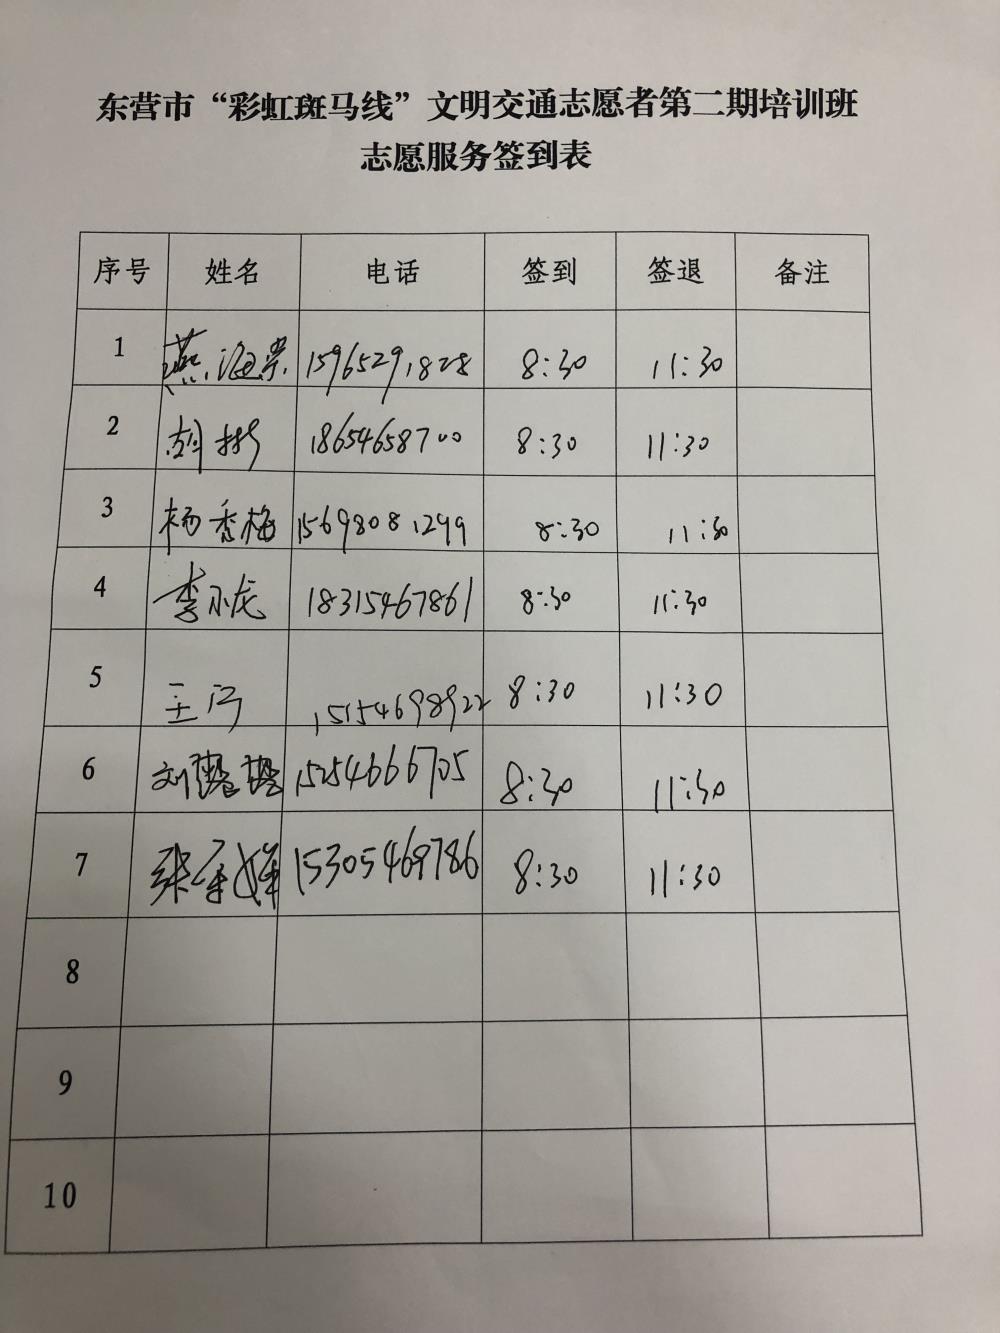 东营市“彩虹斑马线”文明交通志愿者第二期培训班
志愿服务签到表
序号 姓名 电话 签到 签退 备注
1 燕 15965291828 8:30 11:30
2 胡彬 18654658700 8:30 11:30
3 杨秀梅 15698081299 8:30 11:30
4 李小龙 18315467861 8:30 11:30
5 王 15154698922 8:30 11:30
6 刘 15254666705 8:30 11:30
7 张 15305469786 8:30 11:30
8
9
10